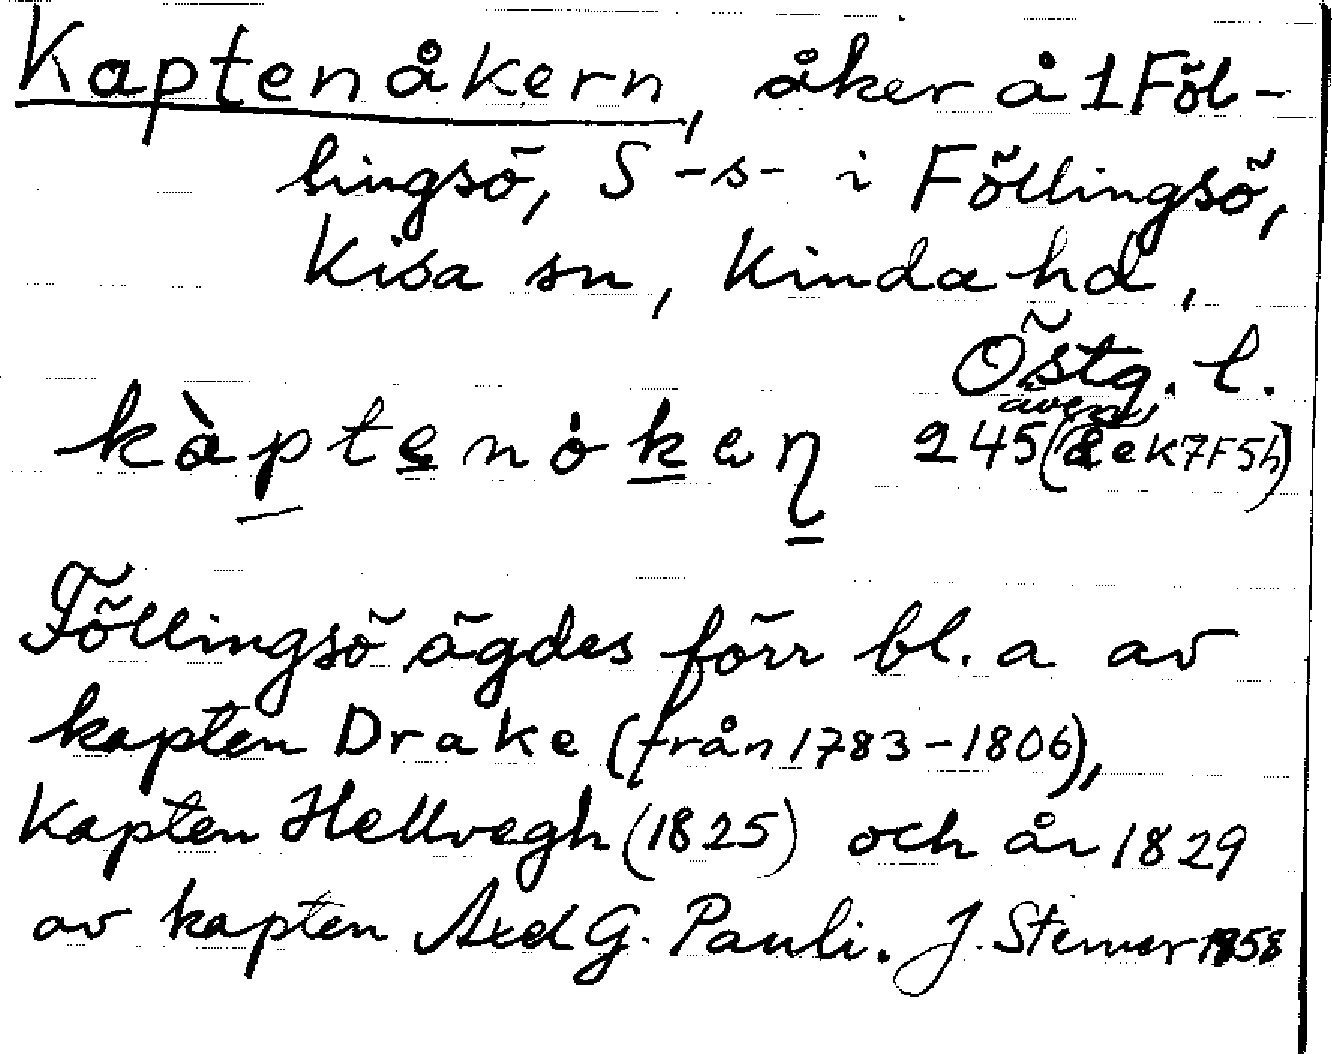 Kaptenåkern, åker å 1 Föl-
lingsö, S -s- i Föllingsö,
Kisa sn, Kinda hd,
Östg. l.
även
kàptenȯken 245 (ekK7F5h)
Föllingsö ägdes förr bl. a av
kapten Drake (från 1783-1806),
Kapten Hellvegh (1825) och år 1829
av kapten Axel G. Pauli. J. Stenvor 1858